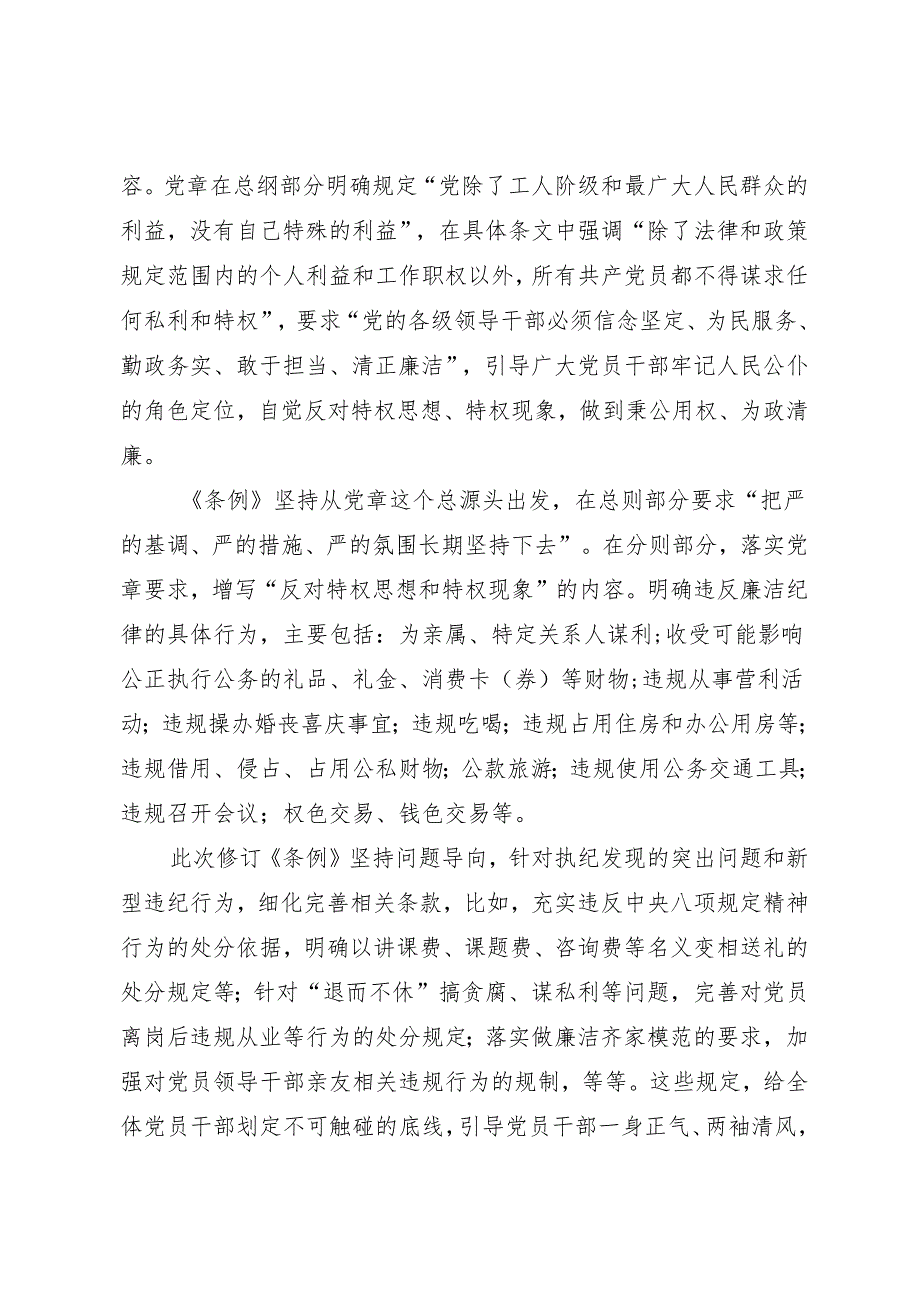 容。党章在总纲部分明确规定“党除了工人阶级和最广大人民群众的
利益，没有自己特殊的利益”，在具体条文中强调“除了法律和政策
规定范围内的个人利益和工作职权以外，所有共产党员都不得谋求任
何私利和特权”，要求“党的各级领导干部必须信念坚定、为民服务、
勤政务实、敢于担当、清正廉洁”，引导广大党员干部牢记人民公仆
的角色定位，自觉反对特权思想、特权现象，做到秉公用权、为政清
廉。
《条例》坚持从党章这个总源头出发，在总则部分要求“把严
的基调、严的措施、严的氛围长期坚持下去”。在分则部分，落实党
章要求，增写“反对特权思想和特权现象”的内容。明确违反廉洁纪
律的具体行为，主要包括：为亲属、特定关系人谋利;收受可能影响
公正执行公务的礼品、礼金、消费卡（券）等财物;违规从事营利活
动；违规操办婚丧喜庆事宜；违规吃喝；违规占用住房和办公用房等；
违规借用、侵占、占用公私财物；公款旅游；违规使用公务交通工具；
违规召开会议；权色交易、钱色交易等。
此次修订《条例》坚持问题导向，针对执纪发现的突出问题和新
型违纪行为，细化完善相关条款，比如，充实违反中央八项规定精神
行为的处分依据，明确以讲课费、课题费、咨询费等名义变相送礼的
处分规定等；针对“退而不休”搞贪腐、谋私利等问题，完善对党员
离岗后违规从业等行为的处分规定；落实做廉洁齐家模范的要求，加
强对党员领导干部亲友相关违规行为的规制，等等。这些规定，给全
体党员干部划定不可触碰的底线，引导党员干部一身正气、两袖清风，